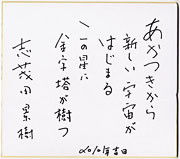 あかつきから
新しい宇宙が
はじまる
の星に
金字塔が樹つ
志茂田景樹
2010年吉日